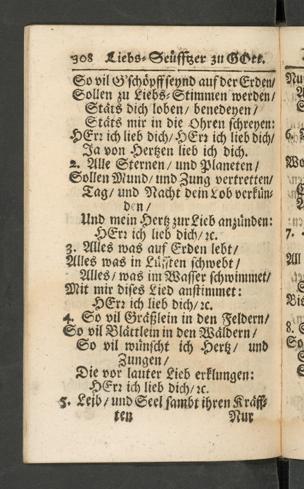 308 Liebs-Seüfftzer zu GOtt.
So vil G'schöpff seynd auf der Erden/
Sollen zu Liebs-Stimmen werden/
Stäts dich loben/ benedeyen/
Stäts mir in die Ohren schreyen:
HErꝛ ich lieb dich/ HErꝛ ich lieb dich/
Ja von Hertzen lieb ich dich.
2. Alle Sternen/ und Planeten/
Sollen Mund/ und Zung vertretten/
Tag/ und Nacht dein Lob verkün-
den/
Und mein Hertz zur Lieb anzünden:
HErꝛ ich lieb dich/ ꝛc.
3. Alles was auf Erden lebt/
Alles was in Lüfften schwebt/
Alles/ was im Wasser schwimmet/
Mit mir dises Lied anstimmet:
HErꝛ ich lieb dich/ ꝛc.
4. So vil Gräßlein in den Feldern/
So vil Blättlein in den Wäldern/
So vil wünscht ich Hertz/ und
Zungen/
Die vor lauter Lieb erklungen:
HErꝛ ich lieb dich/ ꝛc.
5. Leib/ und Seel sambt ihren Kräff-
ten
Nur